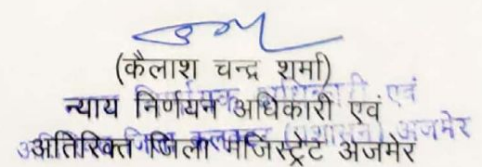 (कैलाश चन्द्र शर्मा)
न्याय निर्णयन अधिकारी एवं
अतिरिक्त जिला मजिस्ट्रेट अजमेर